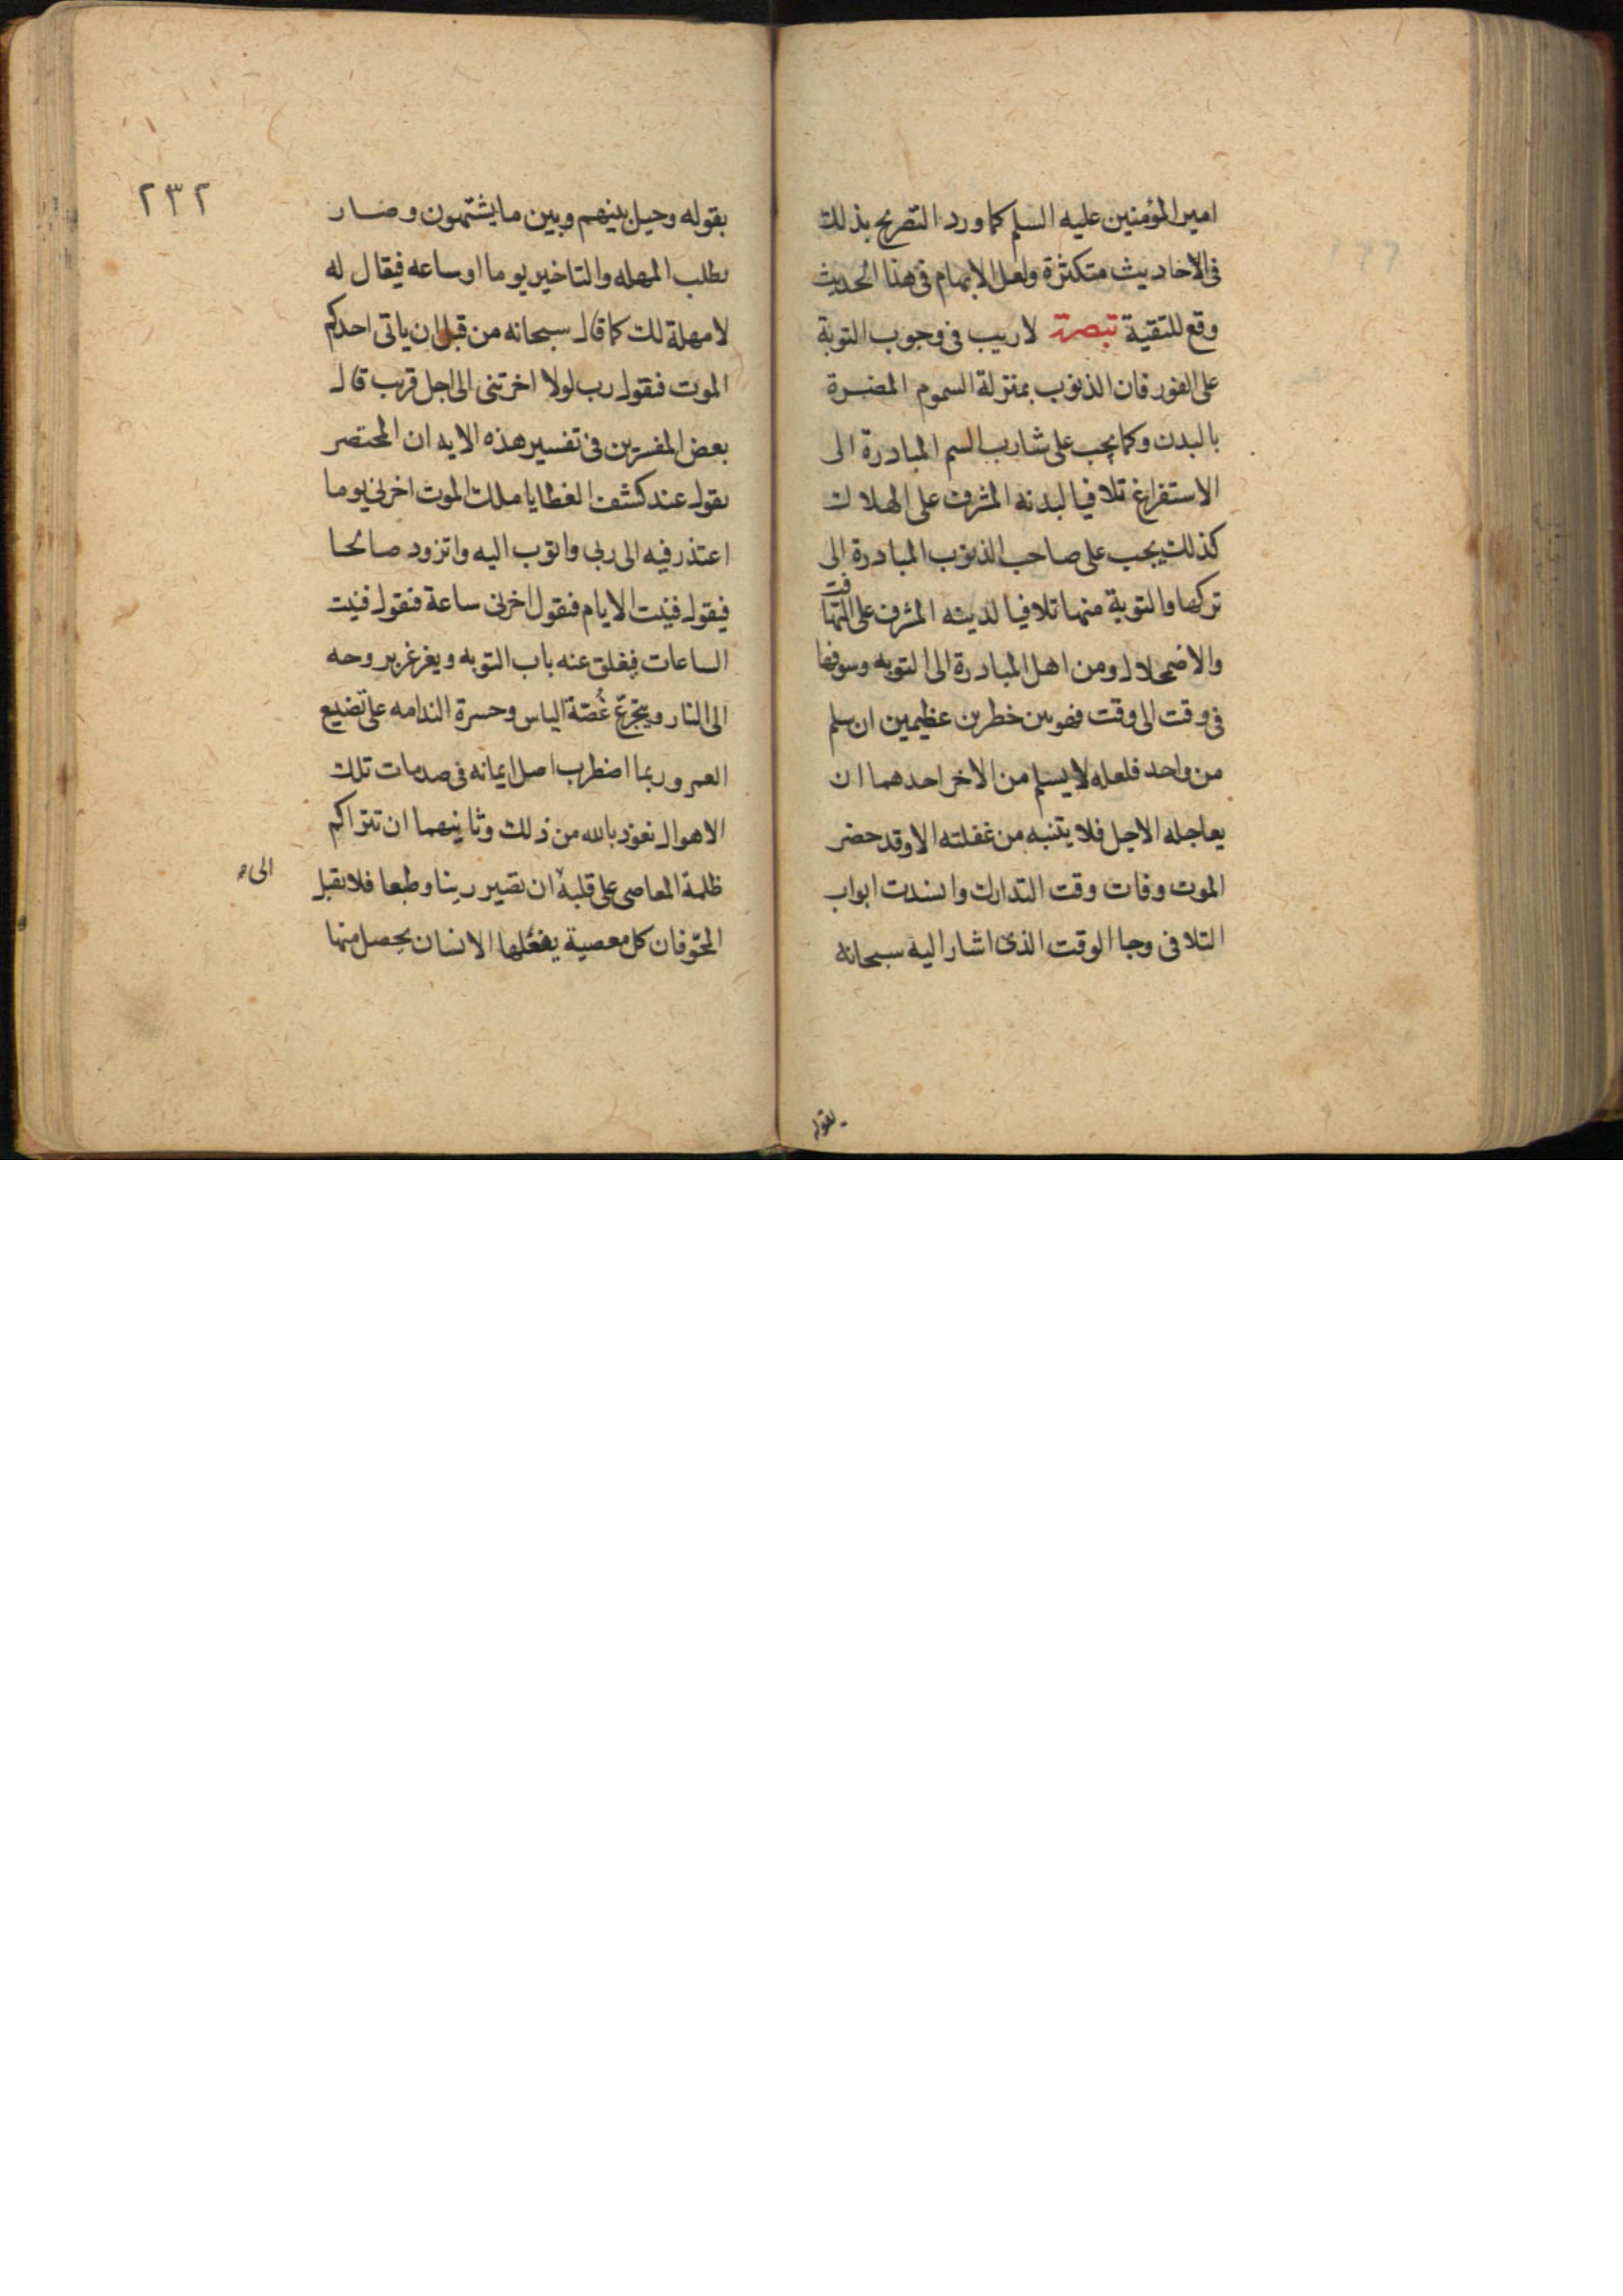 امير المؤمنين عليه السلم كما ورد التصريح بذلك
فى الاحاديث متكثرة ولعل الابهام فى هذا الحديث
وقع للتقية تبصرة لاريب فى وجوب التوبة
على الفور فان الذنوب بمنزلة السموم المضرة
بالبدن وكما يجب على شارب السم المبادرة الى
الاستفراغ تلافيا لبدنه المشرف على الهلاك
كذلك يجب على صاحب الذنوب المبادرة الى
تركها والتوبة منها تلافيا لدينه المشرف على التهافت
والاضمحلال ومن اهمل المبادرة الى التوبه وسوفها
فى وقت الى وقت فهو بين خطرين عظيمين ان سلم
من واحد فلعله لا يسلم من الاخر احدهما ان
يعاجله الاجل فلا يتنبه من غفلته الا وقد حضر
الموت وفات وقت التدارك وانسدت ابواب
التلافى وجا الوقت الذى اشار اليه سبحانه
بقوله
٢٣٢
بقوله وحيل بينهم وبين ما يشتهون وصار
يطلب المهله والتاخير يوما او ساعه فيقال له
لا مهلة لك كما قال سبحانه من قبل ان ياتى احدكم
الموت فيقول رب لولا اخرتنى الى اجل قريب قال
بعض المفسرين فى تفسير هذه الايه ان المحتضر
يقول عند كشف الغطا يا ملك الموت اخرنى يوما
اعتذر فيه الى ربى واتوب اليه واتزود صالحا
فيقول فنيت الايام فيقول اخرنى ساعة فيقول فنيت
الساعات فيغلق عنه باب التوبه ويغرغر بروحه
الى النار ويتجرع غُصّة الياس وحسرة الندامه على تضييع
العمر وربما اضطرب اصل ايمانه فى صدمات تلك
الاهوال نعوذ بالله من ذلك وثانيهما ان تتراكم
ظلمة المعاصى على قلبه ان تصير رينا وطبعا فلا تقبل
الى
المحو فان كل معصية يفعلها الانسان يحصل منها